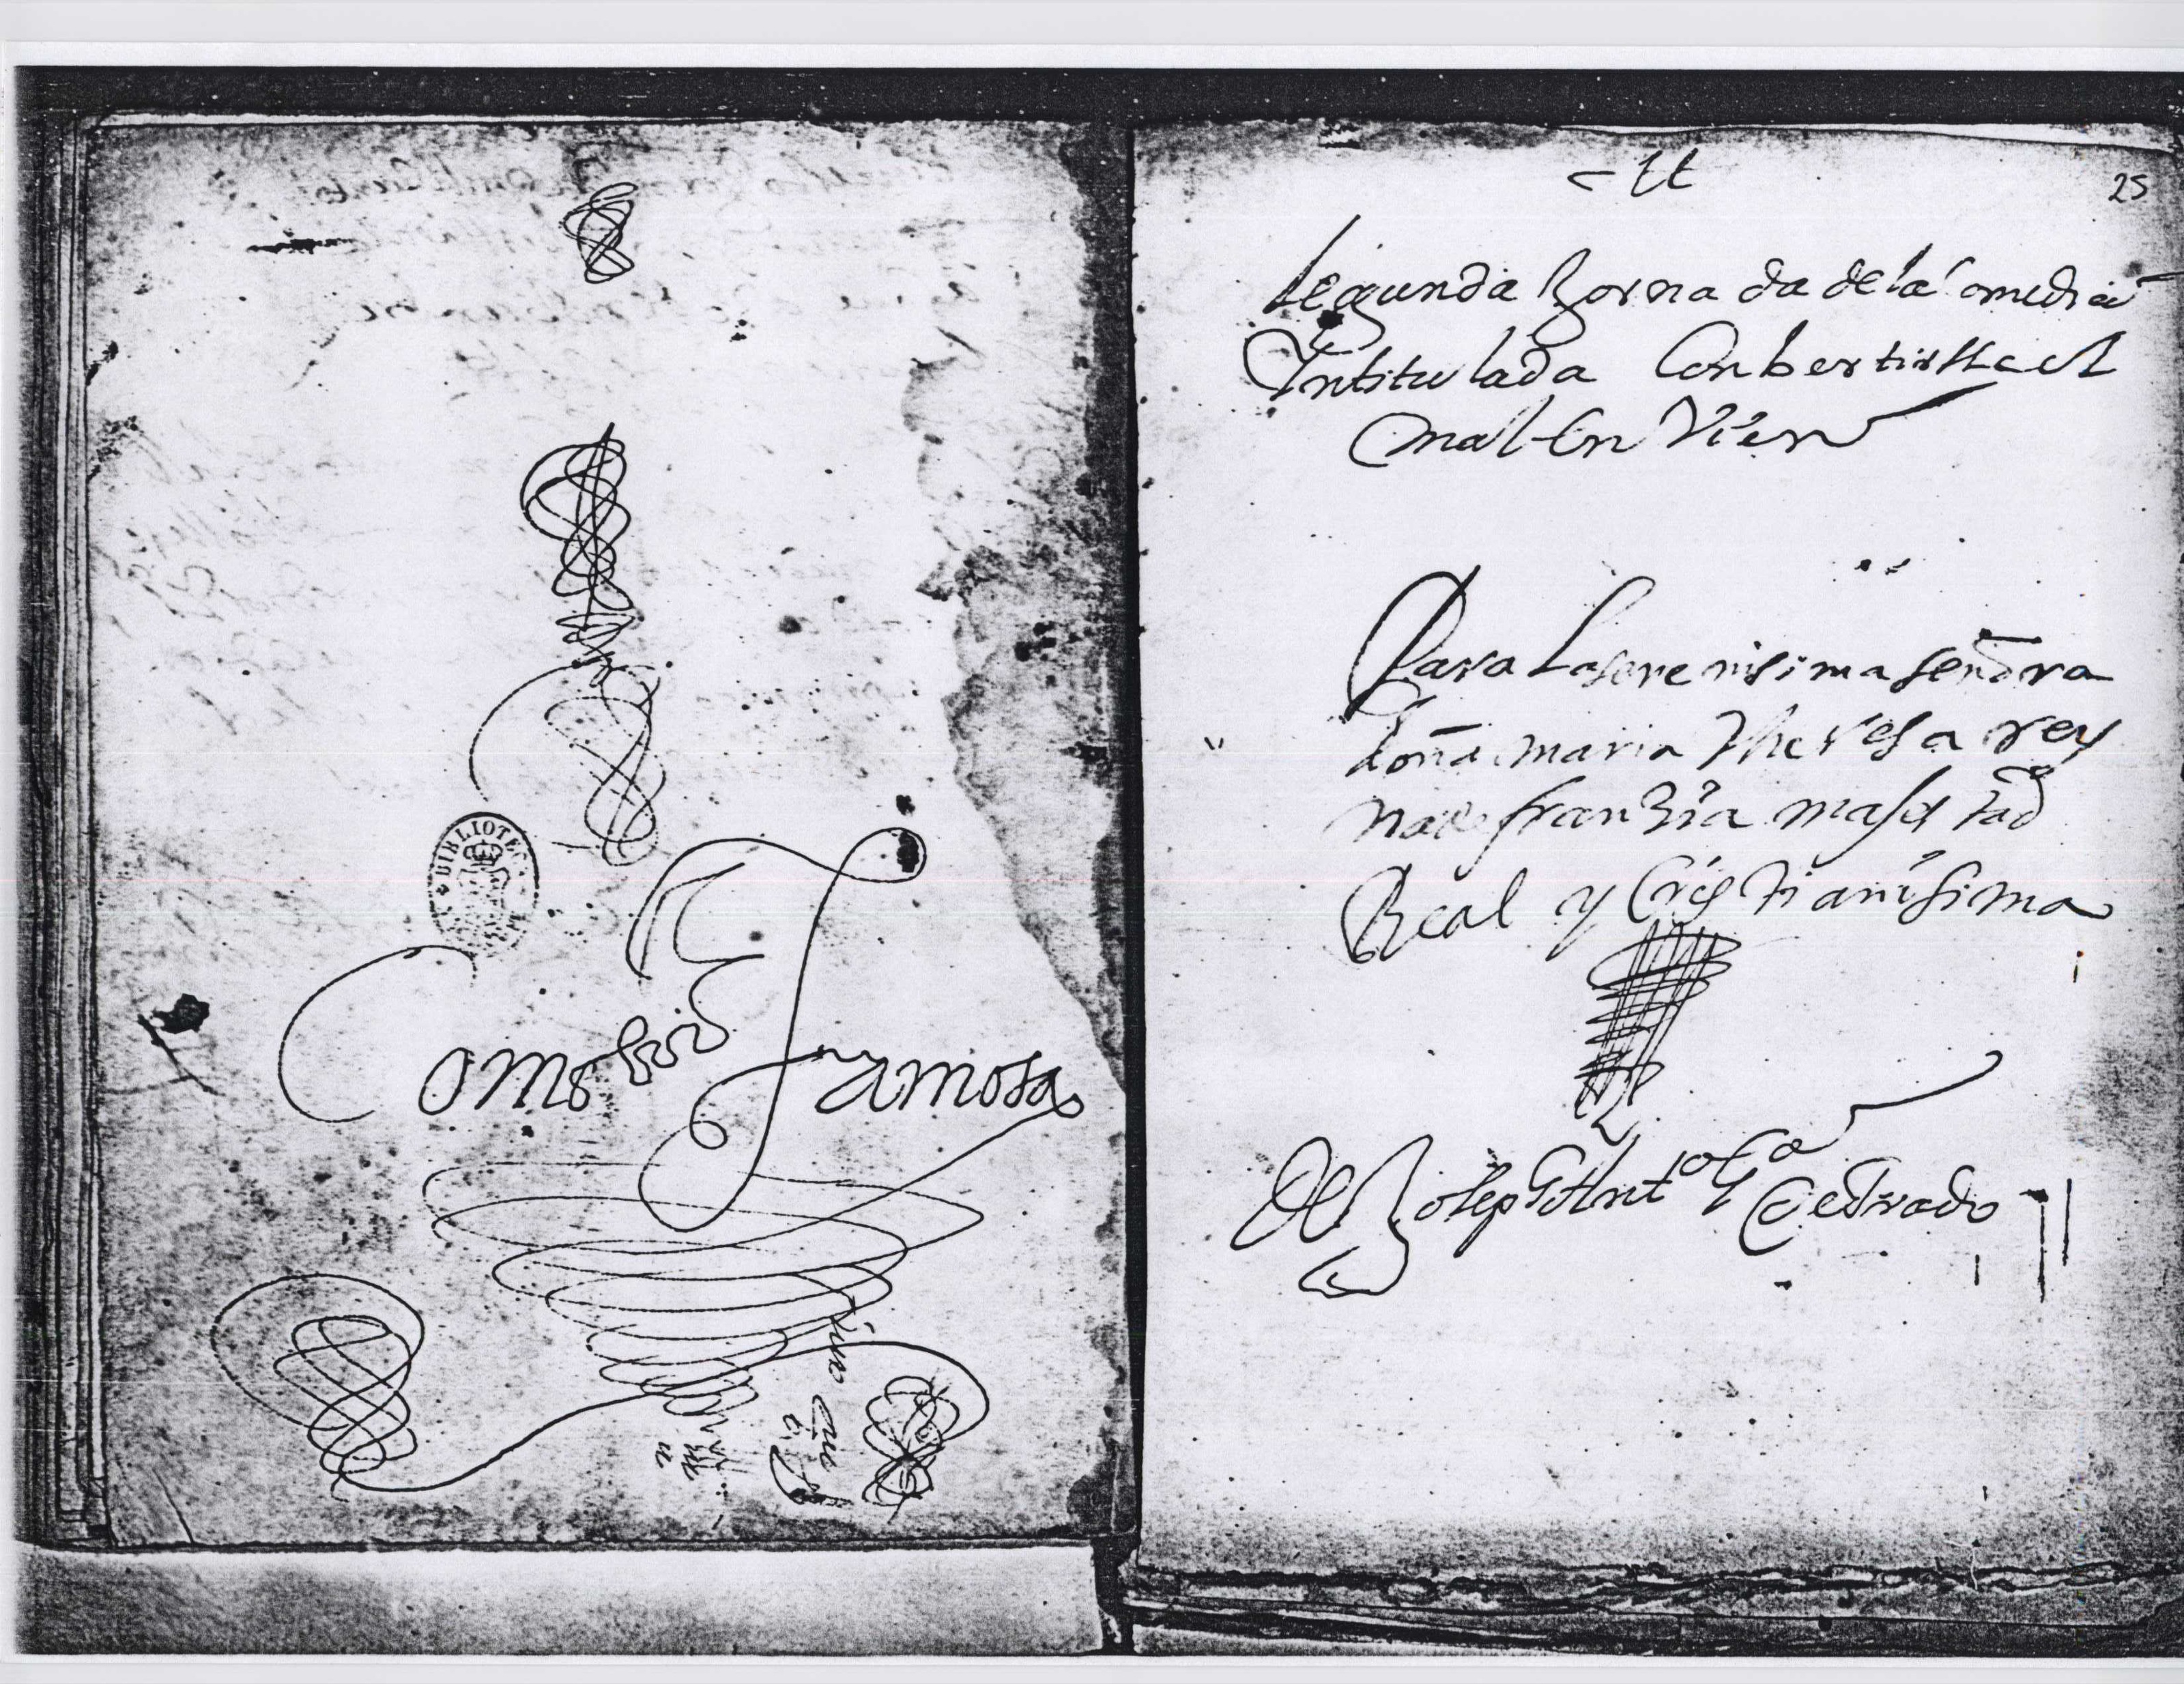 BIBLIOTE
Comedia Famosa
25
Segunda Zornada dela Comedia
Yntitulada Conbertirse el
mal En Vien
Para La serenisima señora
Doña maria Theresa rey
na de franzia majestad
Real y Cristianisima
De Zosep Ant.o Ga
de Prado